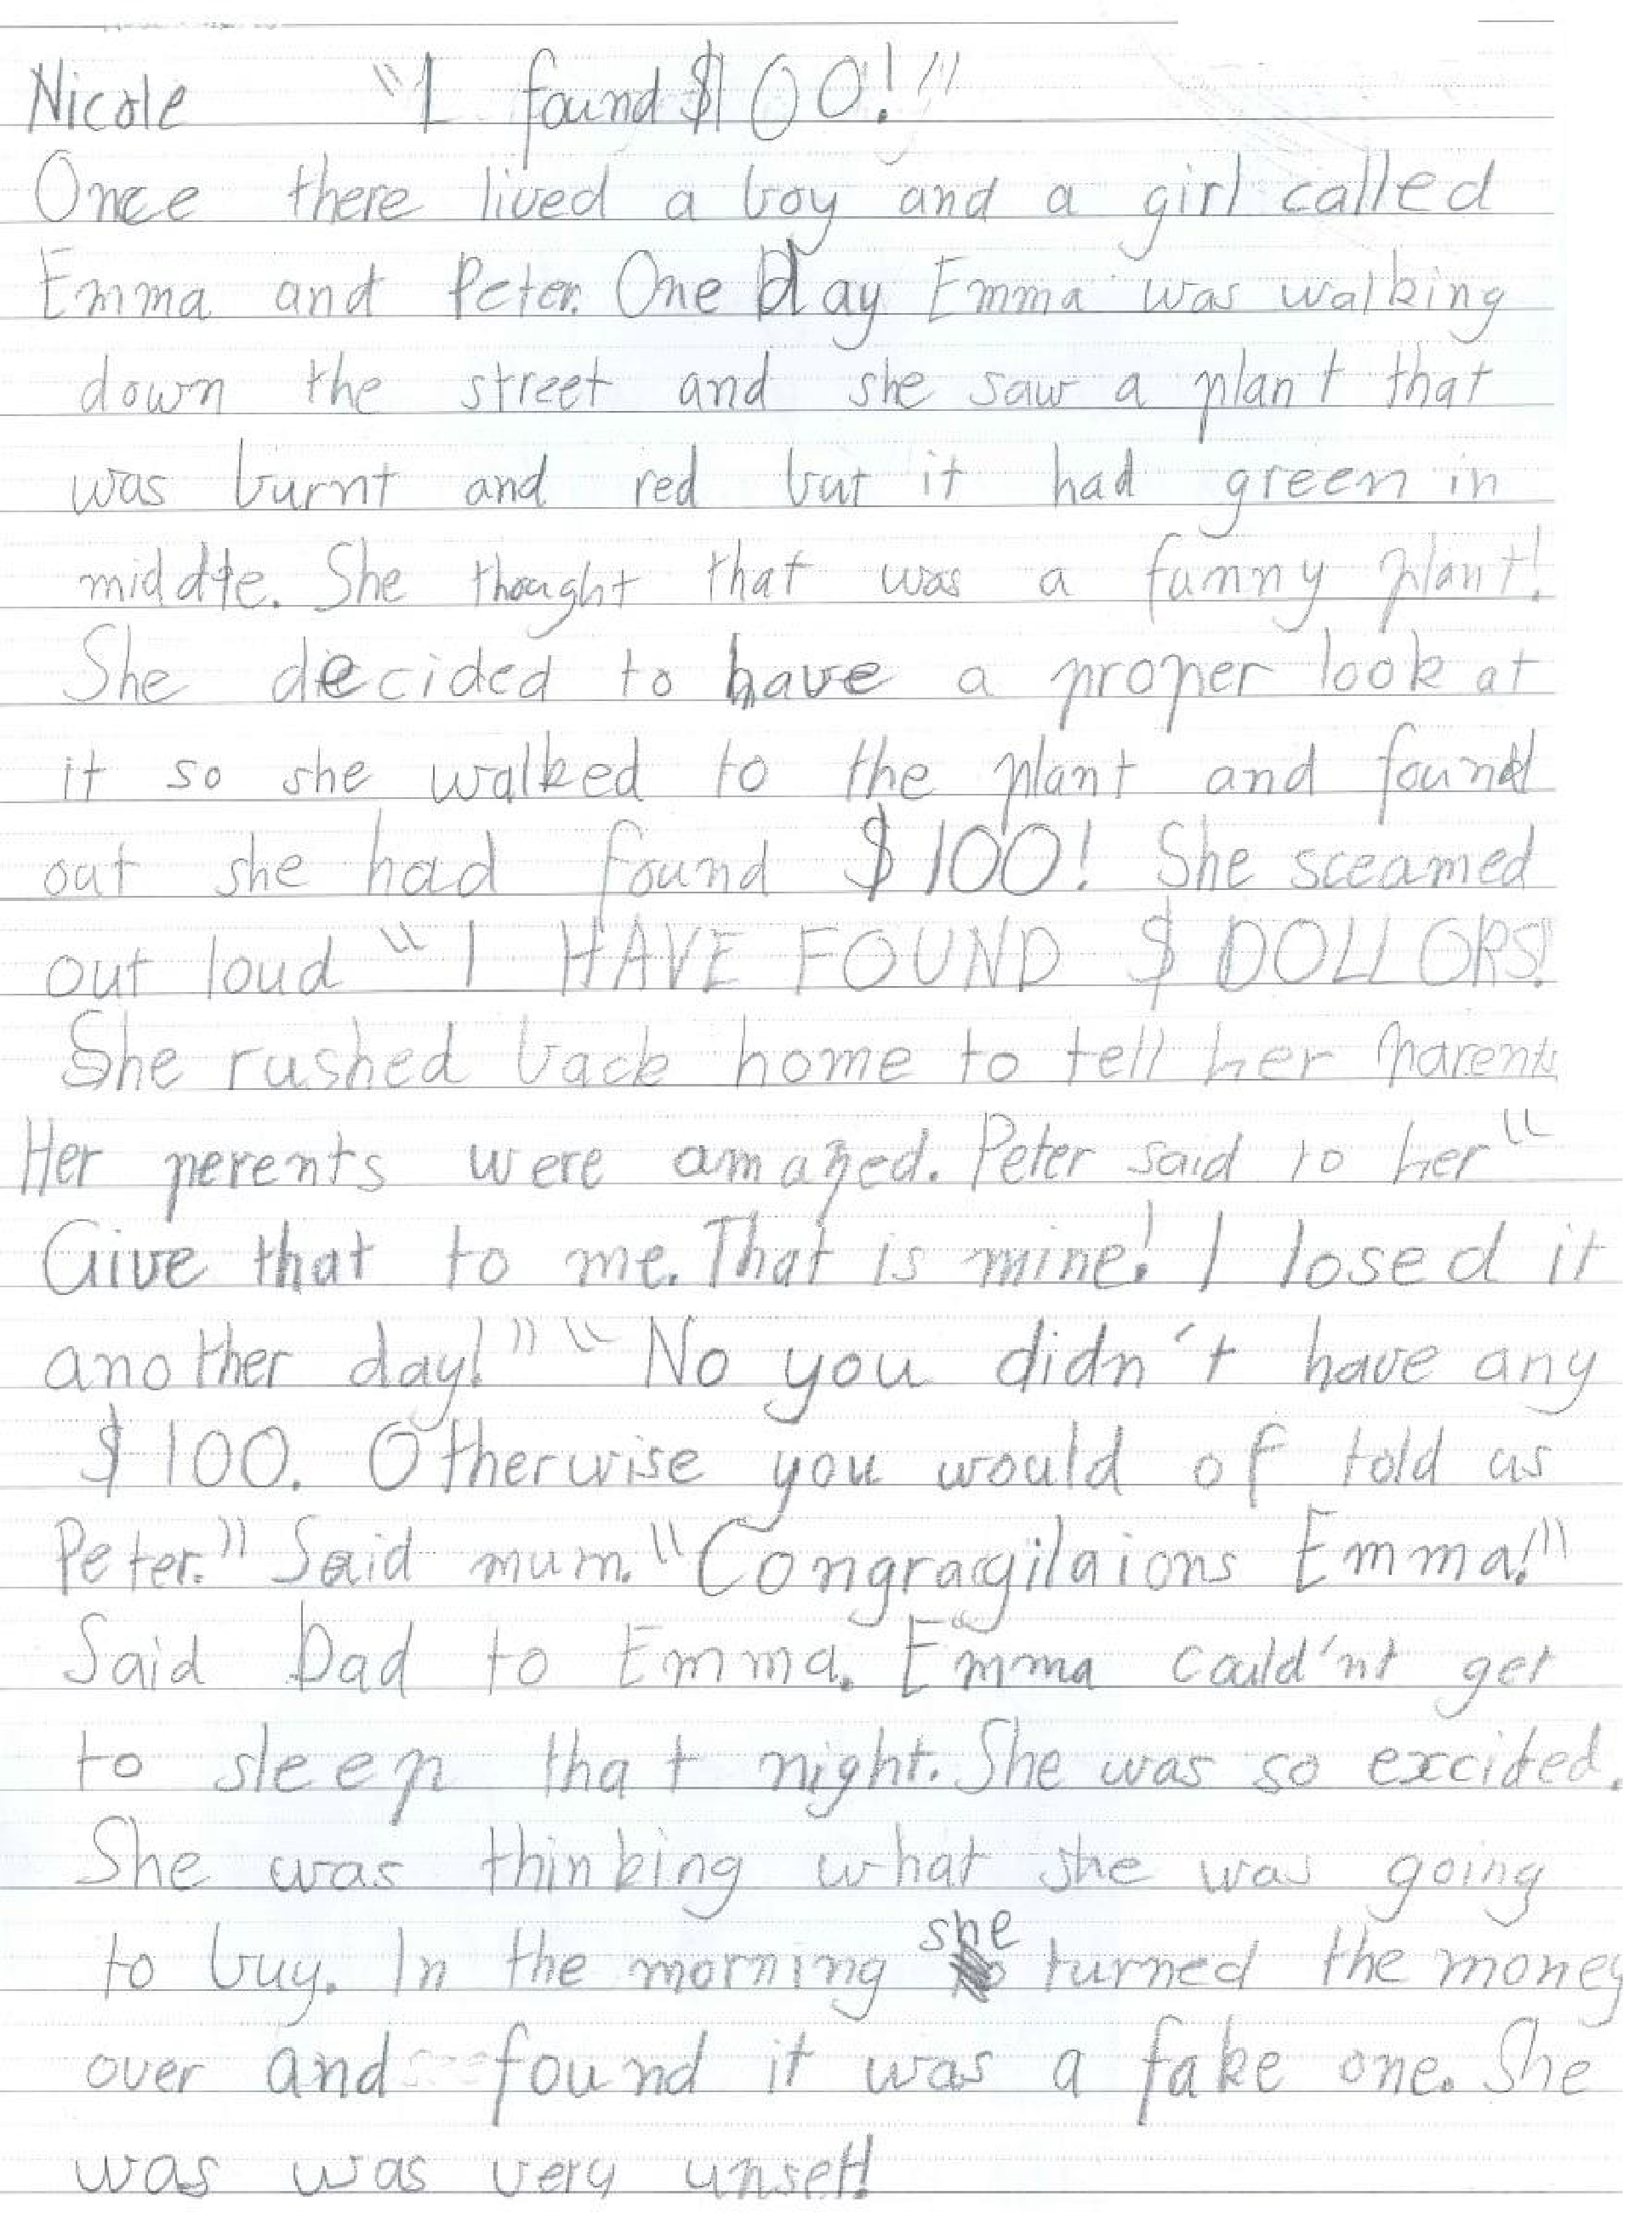 Nicole "I found $100!"
Once there lived a boy and a girl called
Emma and Peter. One day Emma was walking
down the street and she saw a plant that
was burnt and red but it had green in
middle. She thought that was a funny plant!
She decided to have a proper look at
it so she walked to the plant and found
out she had found $100! She sceamed
out loud "I HAVE FOUND $ DOLLORS!
She rushed back home to tell her parents
Her perents were amazed. Peter said to her "
Give that to me. That is mine! I losed it
another day!" "No you didn't have any
$100. Otherwise you would of told us
Peter." Said mum. "Congragilaions Emma!"
Said Dad to Emma. Emma could'nt get
to sleep that night. She was so excited.
She was thinking what she was going
to buy. In the morning she turned the money
over and found it was a fake one. She
was was very unset!